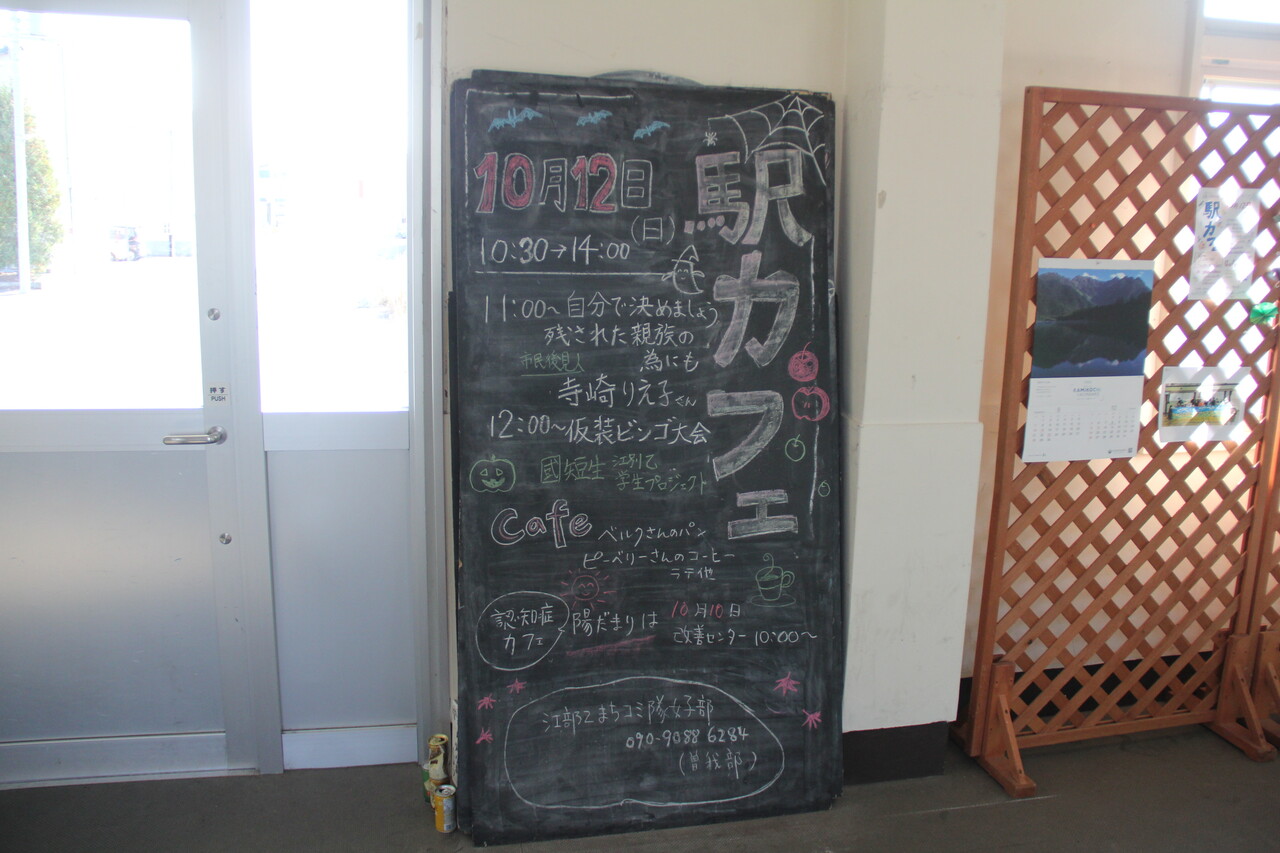 駅カフェ
10月12日
(日)
10:30→14:00
11:00~自分で決めましょう
残された親族の
為にも
市民後見人
寺崎りえ子さん
12:00~仮装ビンゴ大会
國短生
江別乙
学生プロジェクト
Cafe
ベルクさんのパン
ピーベリーさんのコーヒー
ラテ他
認知症
カフェ
陽だまりは
10月10日
改善センター 10:00~
江部乙まちコミ隊女子部
090-9088 6284
(曽我部)
押す
PUSH
駅カフ